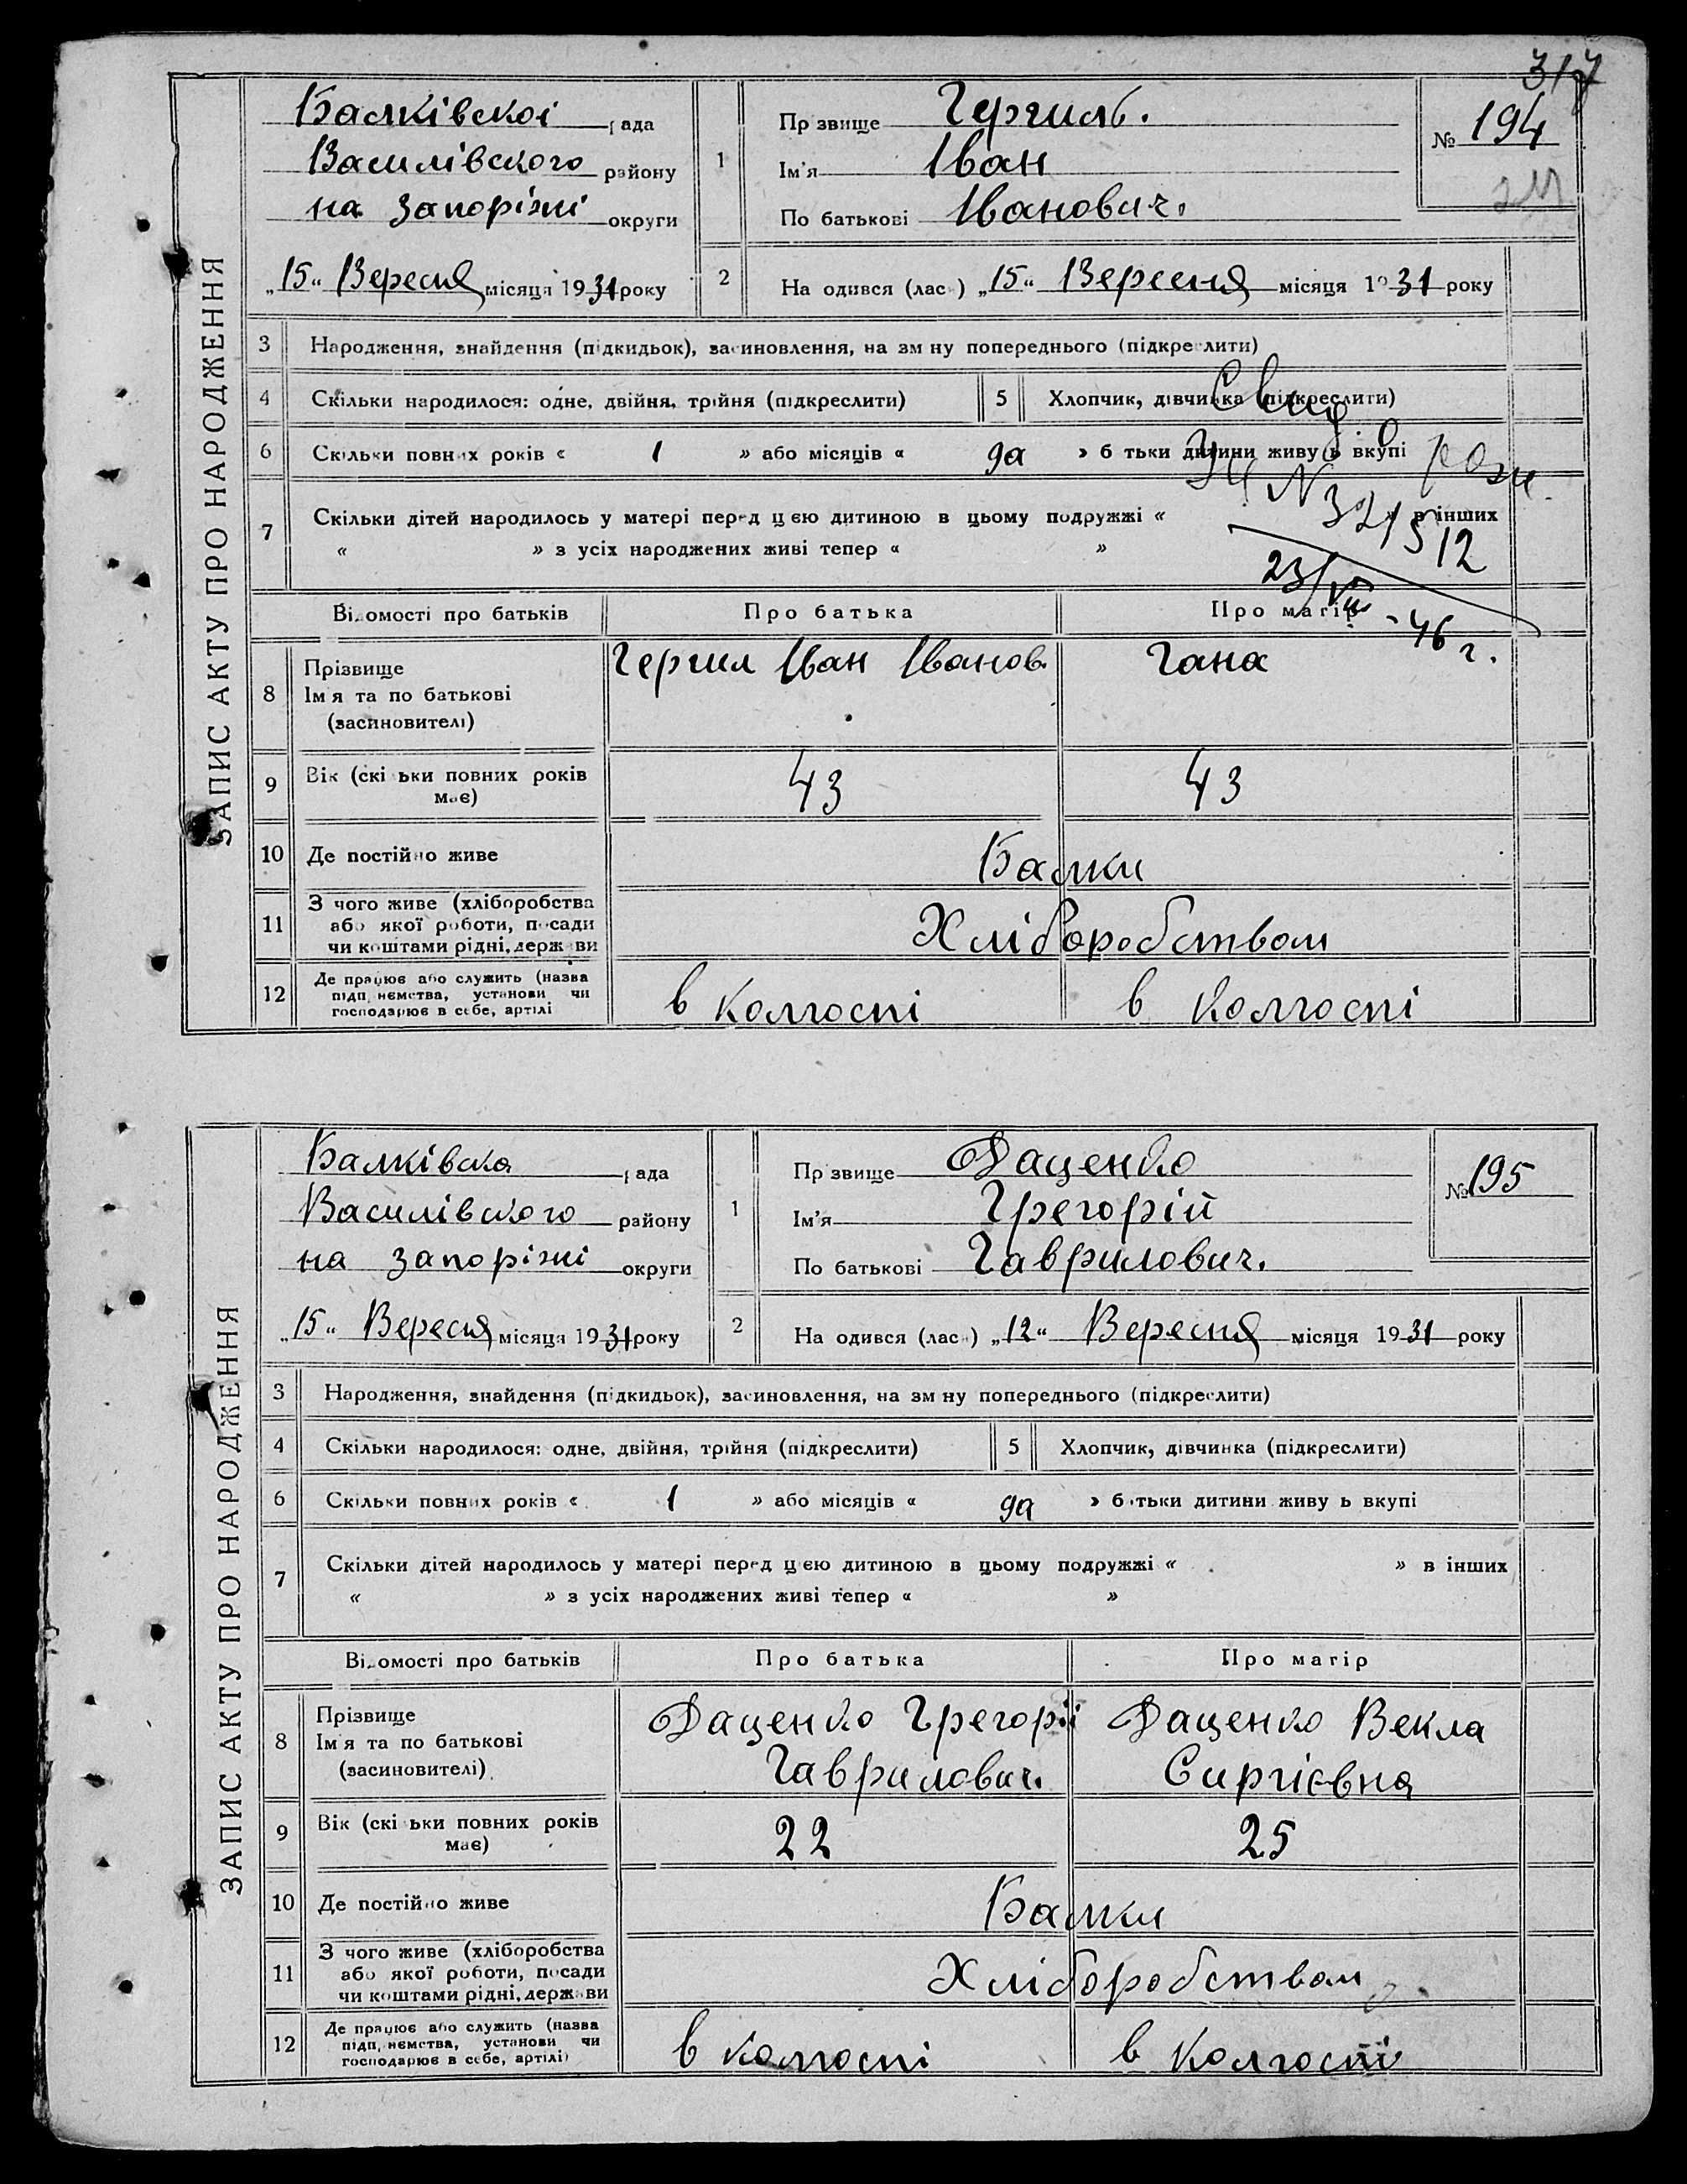 317
ЗАПИС АКТУ ПРО НАРОДЖЕННЯ
Балківскоі рада
Василівского району
на Запоріжі округи
„15“ Вересня місяця 1931 року
1
Прізвище Гергиль.
Ім'я Іван
По батькові Іванович.
№ 194
2 На одився (лась) „15“ Вересня місяця 1931 року
3 Народження, знайдення (підкидьок), засиновлення, на зм ну попереднього (підкреслити)
4 Скільки народилося: одне, двійня, трійня (підкреслити) 5 Хлопчик, дівчинка (підкреслити)
6 Скільки повних років « 1 » або місяців « да » б тьки дитини живу ь вкупі
Свид. о рожд.
N 321512
23/VIII - 46 г.
7 Скільки дітей народилось у матері перед цією дитиною в цьому подружжі « » в інших
« » з усіх народжених живі тепер « »
Відомості про батьків Про батька Про матір
8 Прізвище
Ім'я та по батькові
(засиновителі)
Гергил Іван Іванов. Гана
9 Вік (скі ьки повних років
має)
43 43
10 Де постійно живе Балки
11 З чого живе (хліборобства
або якої роботи, посади
чи коштами рідні, держави
Хліборобством
12 Де працює або служить (назва
підп, нємства, установи чи
господарює в себе, артілі
в колгоспі в колгоспі
ЗАПИС АКТУ ПРО НАРОДЖЕННЯ
Балківска рада
Василівского району
на Запоріжі округи
„15“ Вересня місяця 1931 року
1
Прізвище Даценко
Ім'я Грегорій
По батькові Гаврилович.
№ 195
2 На одився (лась) „12“ Вересня місяця 1931 року
3 Народження, знайдення (підкидьок), засиновлення, на зм ну попереднього (підкреслити)
4 Скільки народилося: одне, двійня, трійня (підкреслити) 5 Хлопчик, дівчинка (підкреслити)
6 Скільки повних років « 1 » або місяців « да » б тьки дитини живу ь вкупі
7 Скільки дітей народилось у матері перед цією дитиною в цьому подружжі « » в інших
« » з усіх народжених живі тепер « »
Відомості про батьків Про батька Про матір
8 Прізвище
Ім'я та по батькові
(засиновителі)
Даценко Грегорії Даценко Векла
Гаврилович. Сиргієвна
9 Вік (скі ьки повних років
має)
22 25
10 Де постійно живе Балки
11 З чого живе (хліборобства
або якої роботи, посади
чи коштами рідні, держави
Хліборобством
12 Де працює або служить (назва
підп, нємства, установи чи
господарює в себе, артілі)
в колгоспі в колгоспі